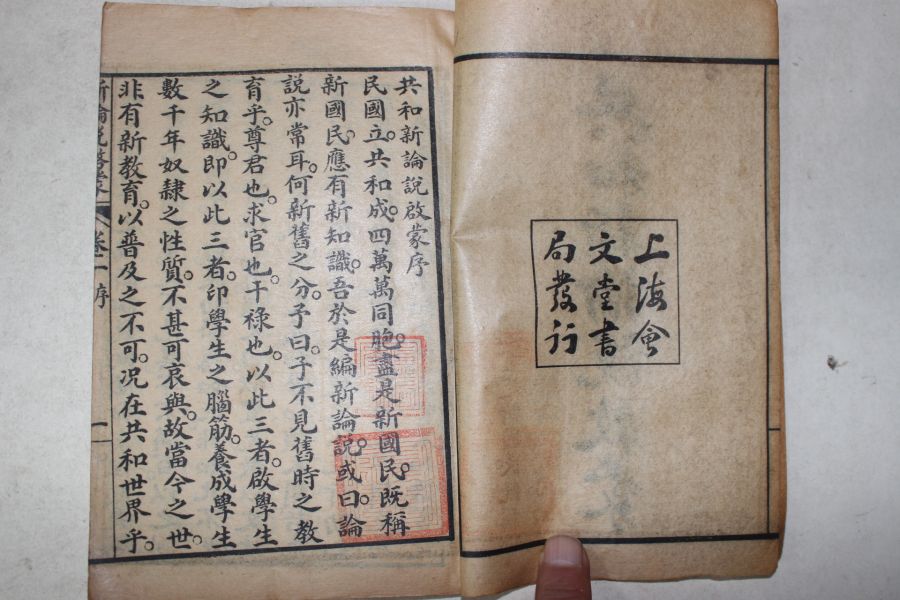 上海會
文堂書
局發行
共和新論說啟蒙序
民國立。共和成。四萬萬同胞。盡是新國民。既稱
新國民。應有新知識。吾於是編新論說。或曰。論
說亦常耳。何新舊之分。予曰。子不見舊時之教
育乎。尊君也。求官也。干祿也。以此三者。啟學生
之知識。即以此三者。印學生之腦筋。養成學生
數千年奴隸之性質。不甚可哀與。故當今之世。
非有新教育。以普及之不可。况在共和世界乎。
新論說啟蒙 卷一 序 一